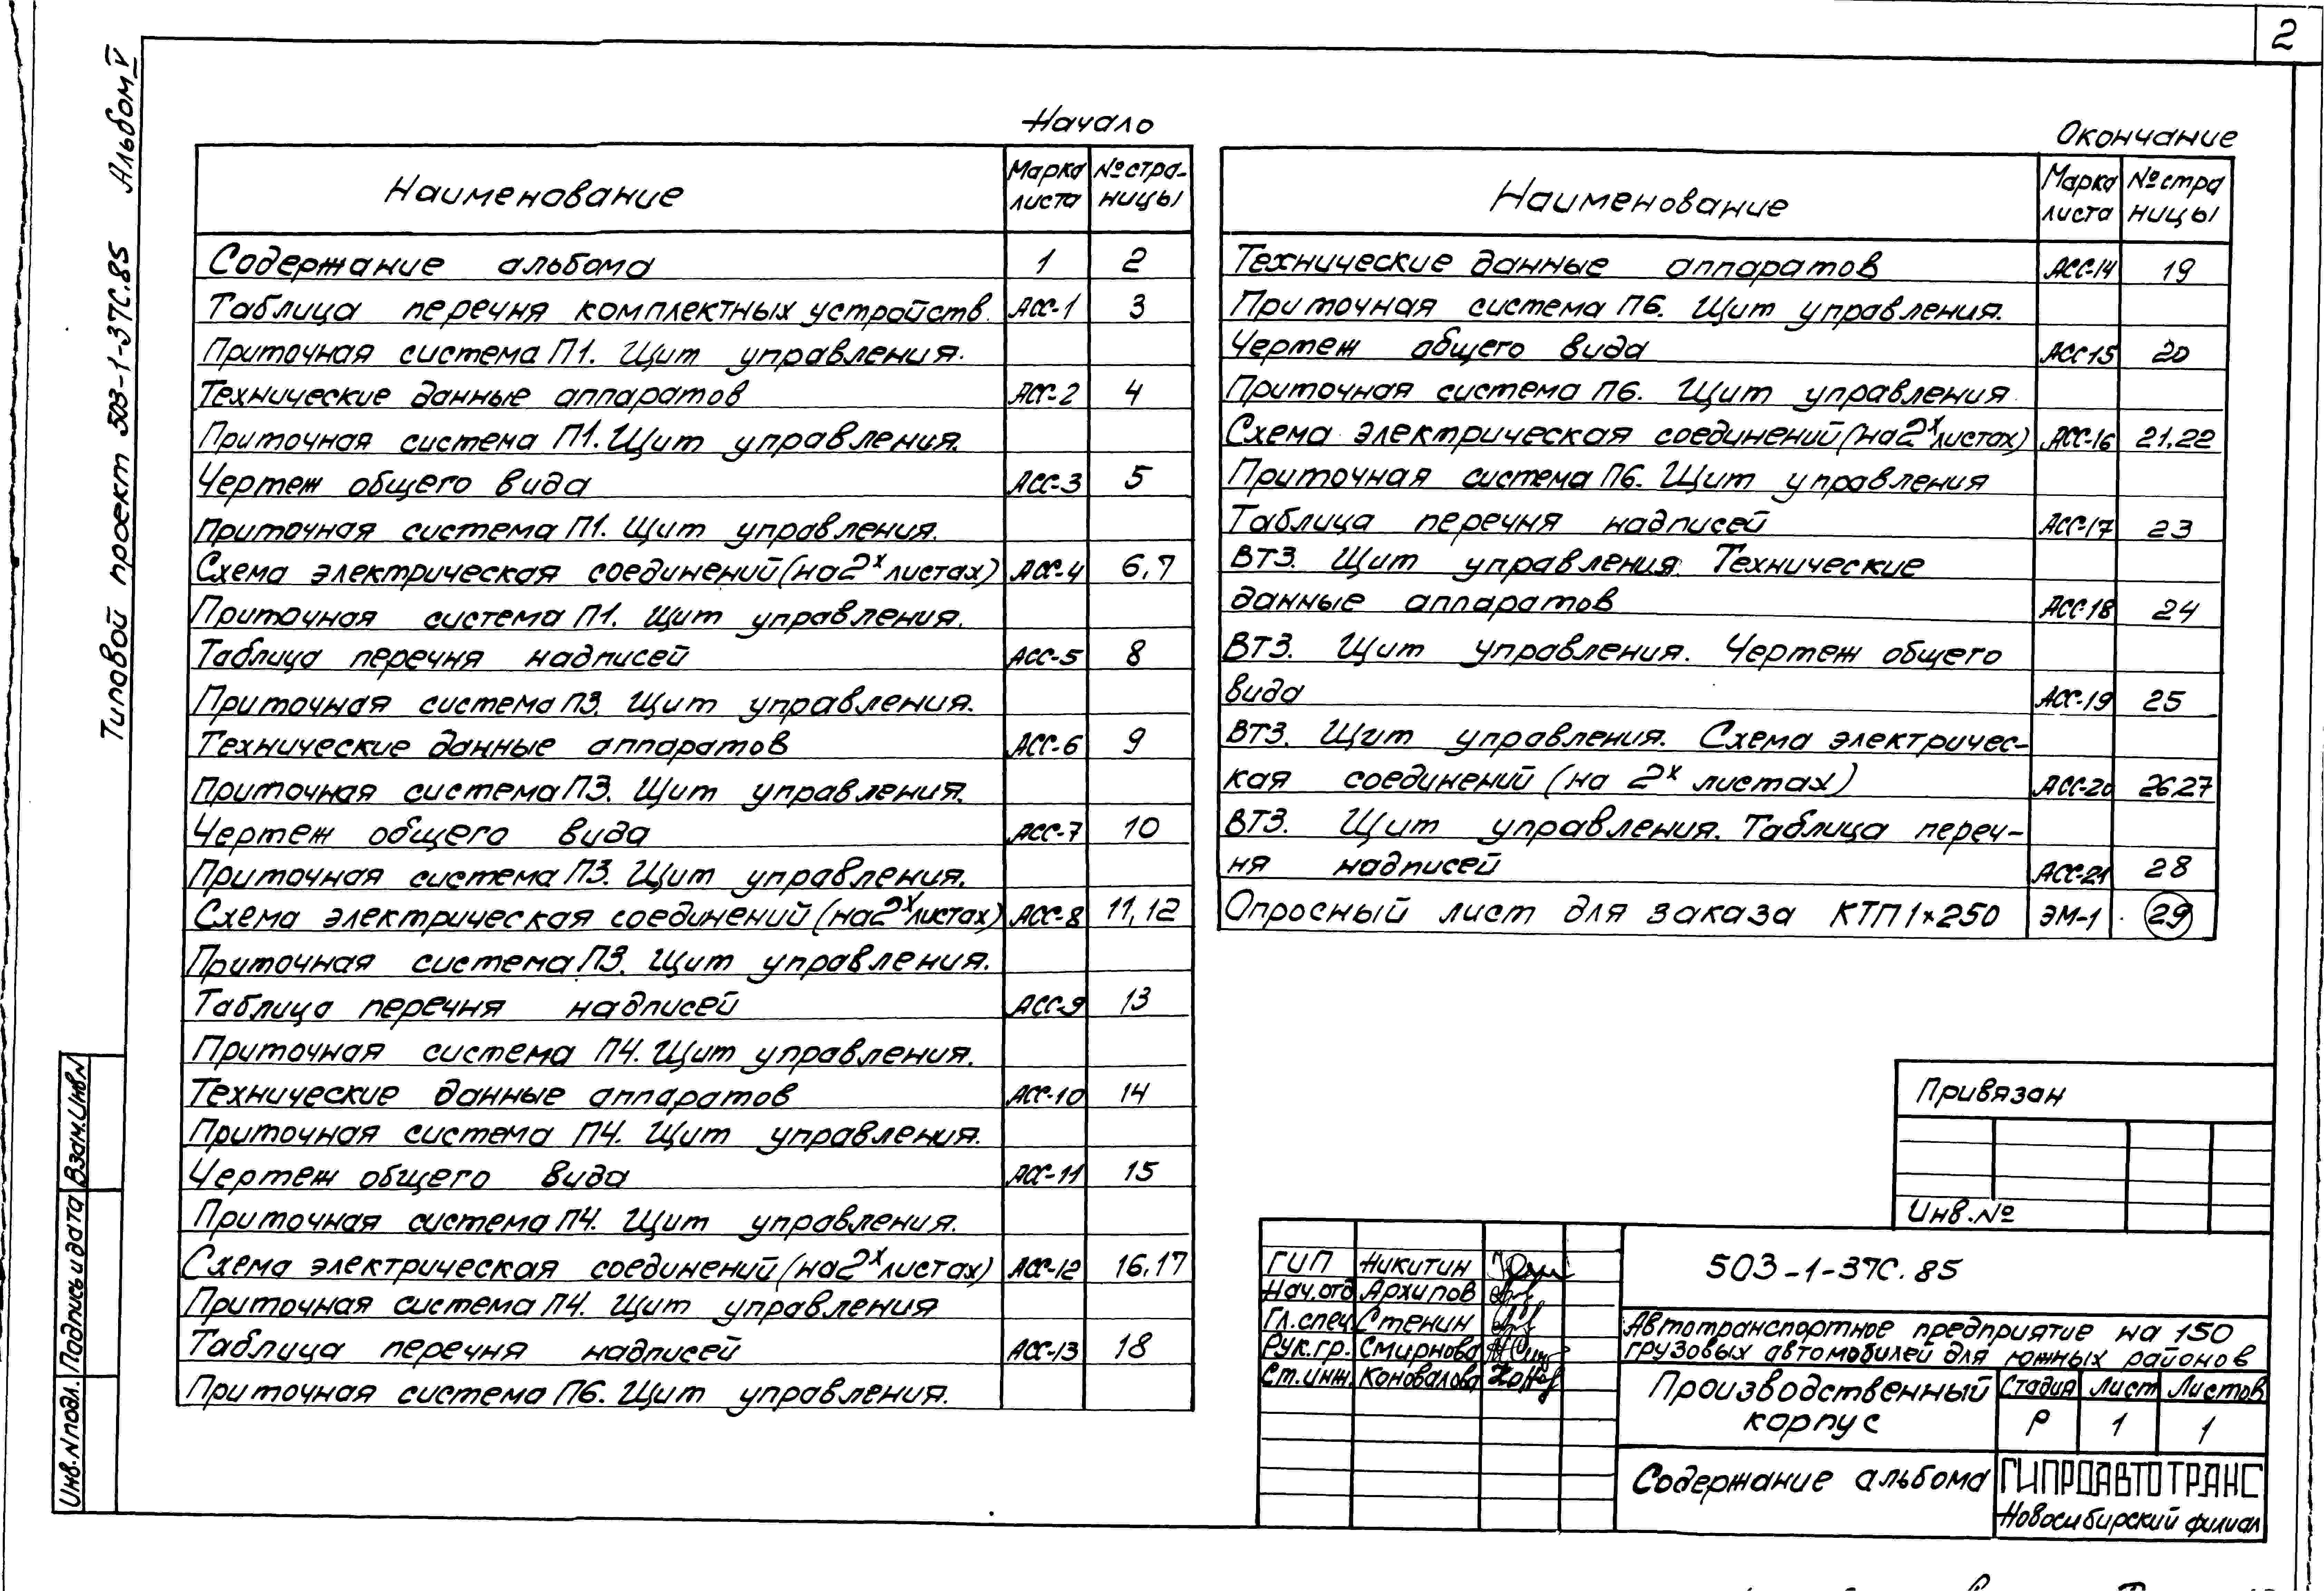 2
Типовой проект 503-1-37С.85 Альбом V
Начало
Наименование Марка листа №стра-ницы
Содержание альбома 1 2
Таблица перечня комплектных устройств. АСС-1 3
Приточная система П1. Щит управления.
Технические данные аппаратов АСС-2 4
Приточная система П1. Щит управления.
Чертеж общего вида АСС-3 5
Приточная система П1. Щит управления.
Схема электрическая соединений (на 2х листах) АСС-4 6,7
Приточная система П1. Щит управления.
Таблица перечня надписей АСС-5 8
Приточная система П3. Щит управления.
Технические данные аппаратов АСС-6 9
Приточная система П3. Щит управления.
Чертеж общего вида АСС-7 10
Приточная система П3. Щит управления.
Схема электрическая соединений (на 2х листах) АСС-8 11,12
Приточная система П3. Щит управления.
Таблица перечня надписей АСС-9 13
Приточная система П4. Щит управления.
Технические данные аппаратов АСС-10 14
Приточная система П4. Щит управления.
Чертеж общего вида АСС-11 15
Приточная система П4. Щит управления.
Схема электрическая соединений (на 2х листах) АСС-12 16,17
Приточная система П4. Щит управления
Таблица перечня надписей АСС-13 18
Приточная система П6. Щит управления.
Окончание
Наименование Марка листа №стра ницы
Технические данные аппаратов АСС-14 19
Приточная система П6. Щит управления.
Чертеж общего вида АСС-15 20
Приточная система П6. Щит управления
Схема электрическая соединений (на 2х листах) АСС-16 21,22
Приточная система П6. Щит управления
Таблица перечня надписей АСС-17 23
ВТЗ. Щит управления. Технические
данные аппаратов АСС-18 24
ВТЗ. Щит управления. Чертеж общего
вида АСС-19 25
ВТЗ. Щит управления. Схема электричес-
кая соединений (на 2х листах) АСС-20 26,27
ВТЗ. Щит управления. Таблица переч-
ня надписей АСС-21 28
Опросный лист для заказа КТП 1×250 ЭМ-1 29
Привязан
Инв.№
ГИП Никитин
Нач.отд Архипов
Гл.спец Стенин
Рук.гр. Смирнова
Ст.инж. Коновалова
503-1-37С.85
Автотранспортное предприятие на 150
грузовых автомобилей для южных районов
Производственный
корпус
Стадия Лист Листов
Р 1 1
Содержание альбома
ГИПРОАВТОТРАНС
Новосибирский филиал
Инв.N подл. Подпись и дата Взам.Инв N